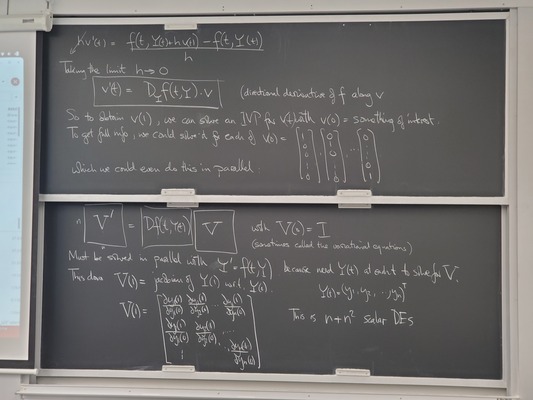 v'(t) = f(t, Y(t)+hv(t)) - f(t, Y(t)) / h
Taking the limit h→0
v'(t) = D_Y f(t,Y)·v (directional derivative of f along v
So to obtain v(1), we can solve an IVP for v(t) with v(0) = something of interest.
To get full info, we could solve it for each of v(0) = [1 0 ⋮ 0] [0 1 0 ⋮ 0] ... [0 ⋮ 0 1]
which we could even do this in parallel.
n V' = Df(t,Y(t)) V with V(0) = I
(sometimes called the variational equations)
Must be solved in parallel with Y' = f(t,Y) because need Y(t) in order to solve for V.
This done V(1) = Jacobian of Y(1) w.r.t. Y(0). Y(t) = (y1, y2, ..., yn)^T
V(1) = [∂y1(1)/∂y1(0) ∂y1(1)/∂y2(0) ... ∂y1(1)/∂yn(0)
∂y2(1)/∂y1(0) ∂y2(1)/∂y2(0) ...
⋮ ∂yn(1)/∂yn(0)]
This is n+n² scalar DEs